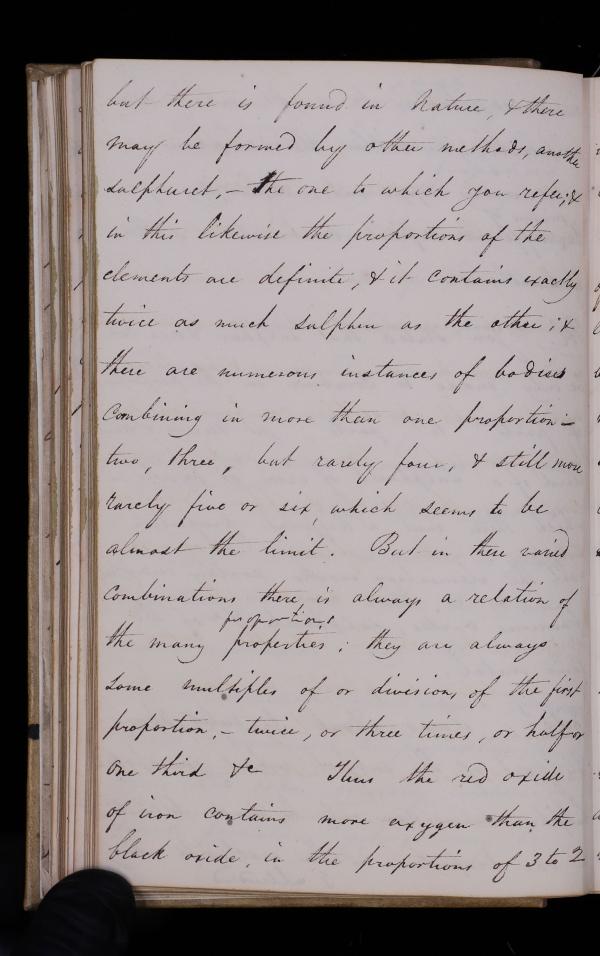 but there is found in Nature, & there
may be formed by other methods, another
sulphuret, – the one to which you refer; &
in this likewise the proportions of the
elements are definite, & it contains exactly
twice as much sulphur as the other; &
there are numerous instances of bodies
combining in more than one proportion –
two, three, but rarely four, & still more
rarely five or six, which seems to be
almost the limit. But in these varied
combinations there is always a relation of
proportions
the many properties; they are always
some multiples of or divisions, of the first
proportion, – twice, or three times, or half or
one third &c Thus the red oxide
of iron contains more oxygen than the
black oxide, in the proportions of 3 to 2